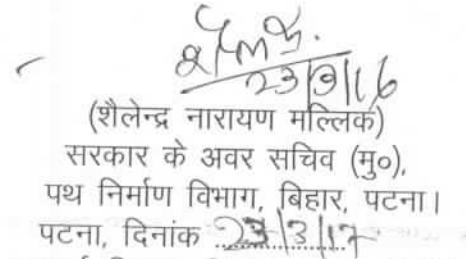 23/3/16
(शैलेन्द्र नारायण मल्लिक)
सरकार के अवर सचिव (मु०),
पथ निर्माण विभाग, बिहार, पटना।
पटना, दिनांक 23/3/17